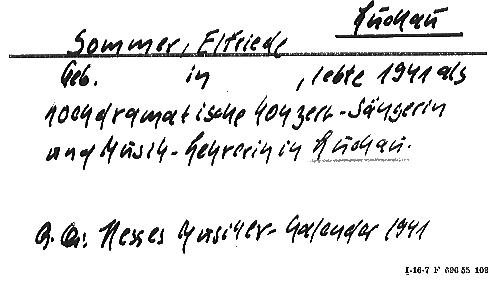 Buchau
Sommer, Elfriede
Geb. in , lebte 1941 als
hochdramatische Konzert-Sängerin
und Musik-Lehrerin in Buchau.
Hesses Musiker-Kalender 1941
I-16-7 F 690 55 109